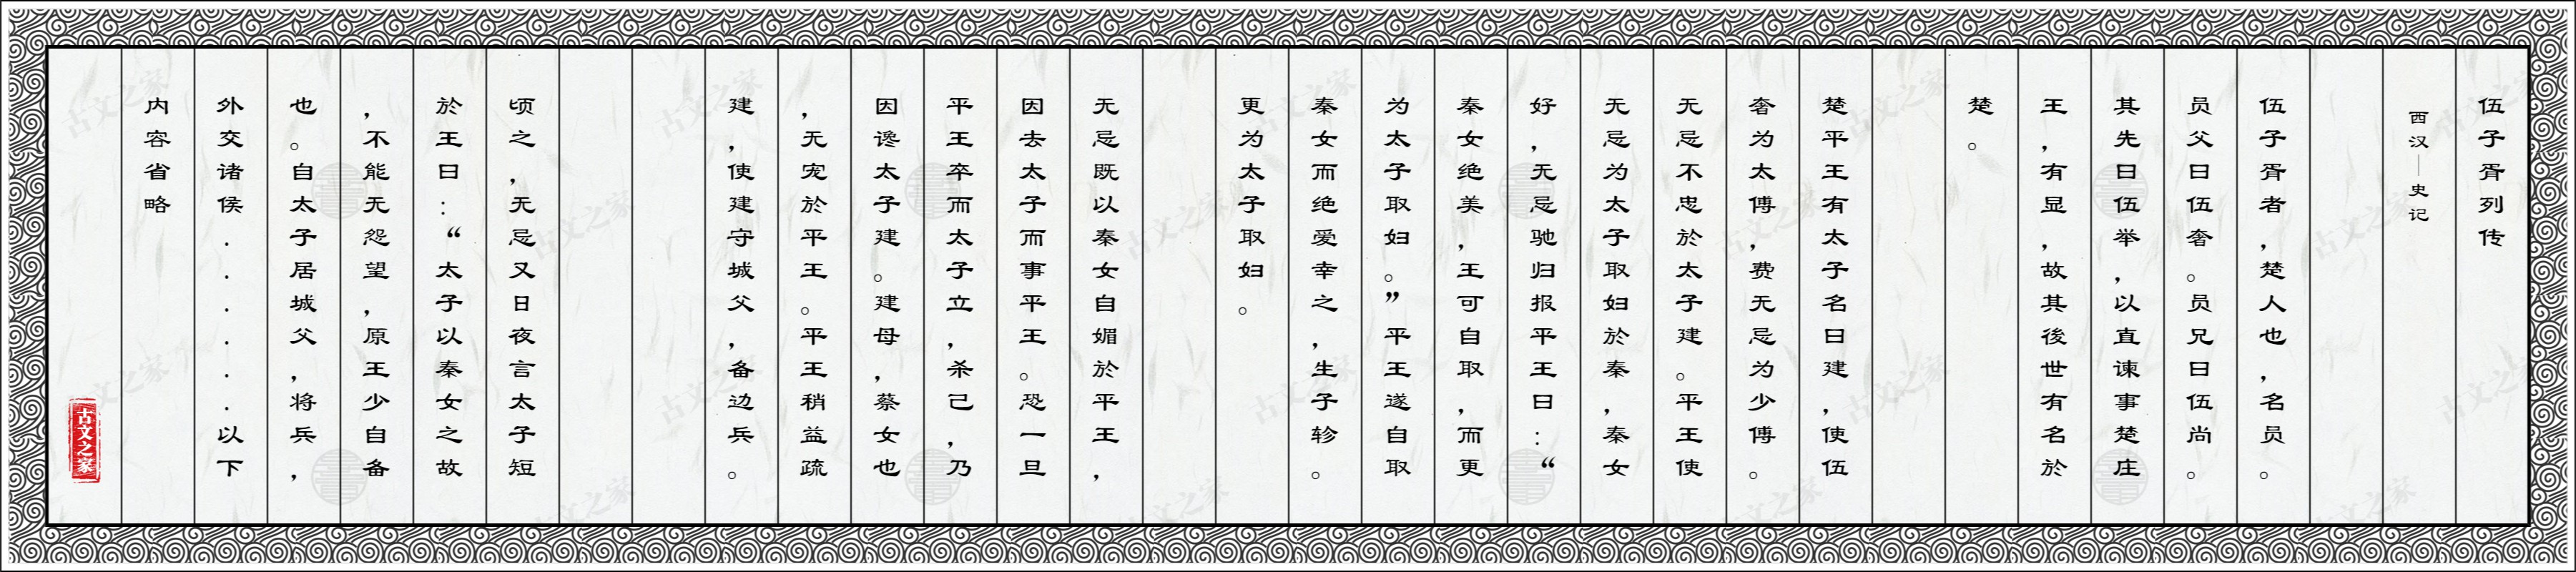 伍子胥列传
西汉—史记
伍子胥者，楚人也，名员。
员父曰伍奢。员兄曰伍尚。
其先曰伍举，以直谏事楚庄
王，有显，故其後世有名於
楚。
楚平王有太子名曰建，使伍
奢为太傅，费无忌为少傅。
无忌不忠於太子建。平王使
无忌为太子取妇於秦，秦女
好，无忌驰归报平王曰：“
秦女绝美，王可自取，而更
为太子取妇。”平王遂自取
秦女而绝爱幸之，生子轸。
更为太子取妇。
无忌既以秦女自媚於平王，
因去太子而事平王。恐一旦
平王卒而太子立，杀己，乃
因谗太子建。建母，蔡女也
，无宠於平王。平王稍益疏
建，使建守城父，备边兵。
顷之，无忌又日夜言太子短
於王曰：“太子以秦女之故
，不能无怨望，原王少自备
也。自太子居城父，将兵，
外交诸侯......以下
内容省略
古文之家